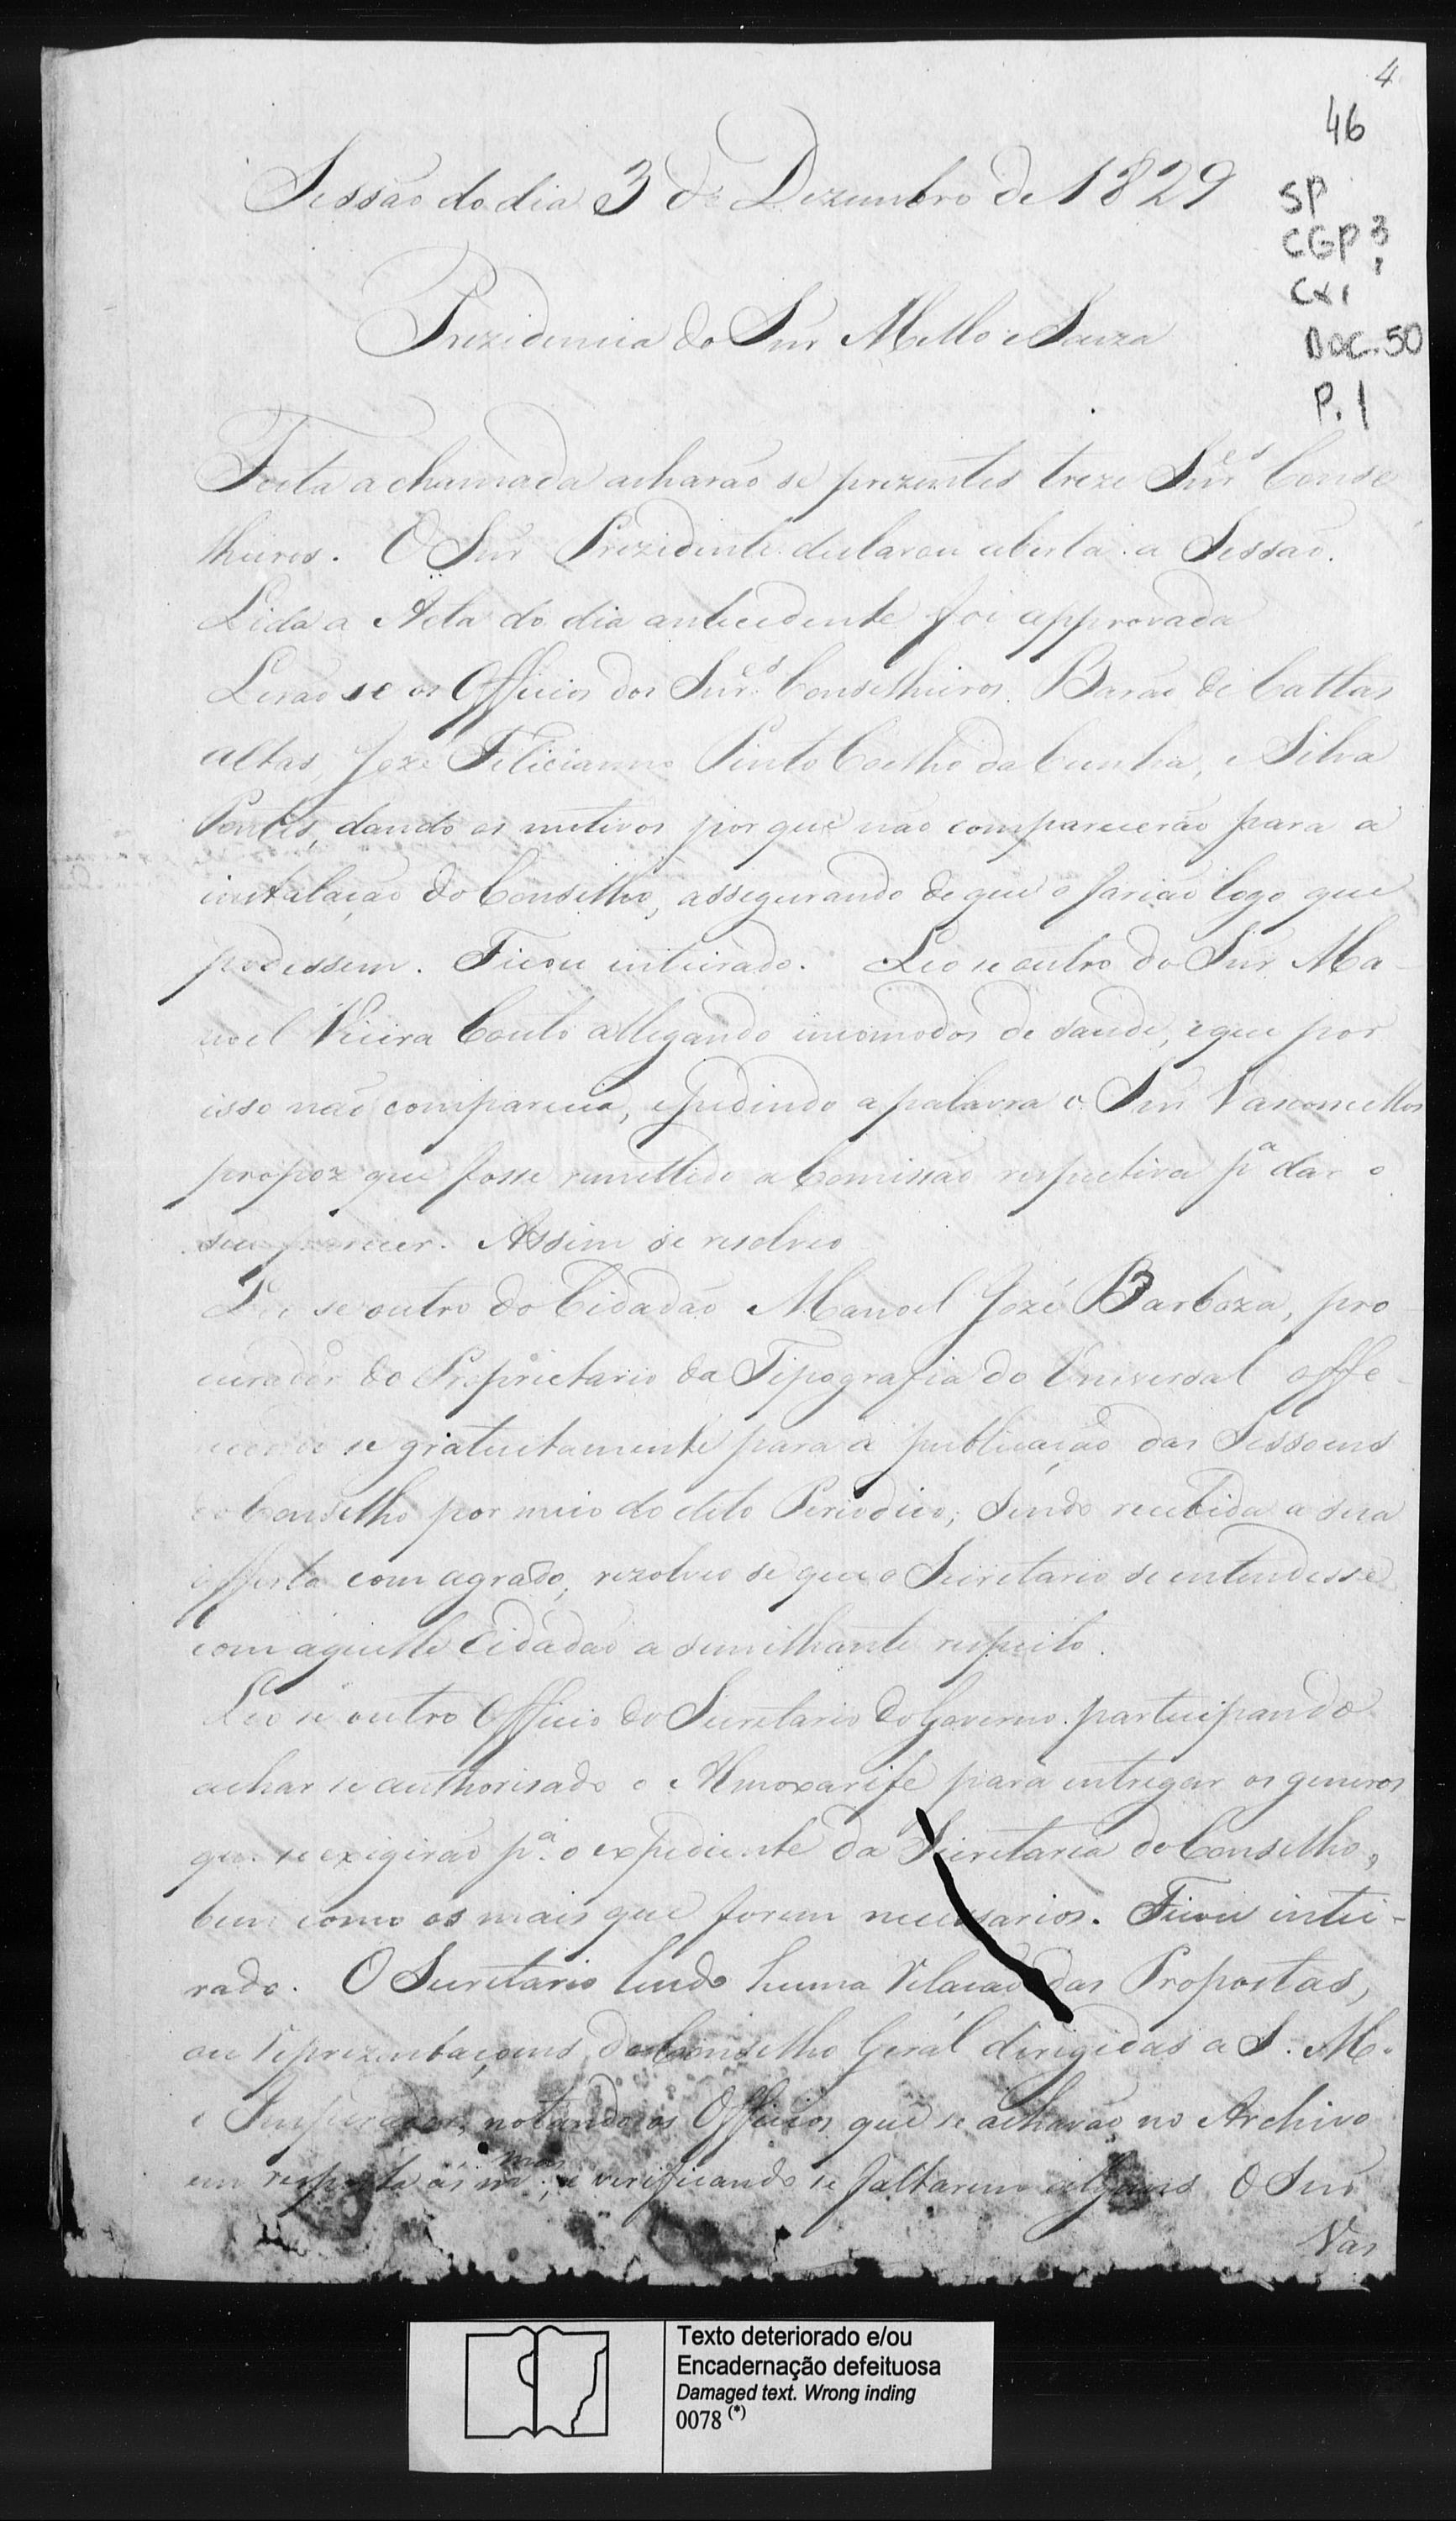 4
46
SP
CGP 3
1
CX1
DOC. 50
P. 1
Sessão do dia 3 de Dezembro de 1829
Prezidencia do Snr Mello e Souza
Feita a chamada acharão se prezentes treze Snr.es Conse
lheiros. O Snr Prezidente declarou aberta a Sessão.
Lida a Acta do dia antecedente foi approvada
Lerão se os Officios dos Snr.es Conselheiros Barão de Cattas
altas, Jozé Felicianno Pinto Coelho da Cunha, e Silva
Pontes, dando os motivos por que não comparecerão para a
instalação do Conselho, assegurando de que o farião logo que
podessem. Ficou inteirado. Leo se outro do Snr. Ma-
noel Vieira Couto allegando incomodos de saude, e que por
isso não comparecia, e pedindo a palavra o Snr Vasconcellos
propoz que fosse remettido a Comissão respectiva p.a dar o
seu parecer. Assim se resolveo
Leo se outro do Cidadão Manoel Jozé Barboza, pro-
curador do Proprietario da Tipografia do Universal offe-
recendo se gratuitamente para a publicação das Sessoens
do Conselho por meio do dito Periodico; sendo recebida a sua
offerta com agrado, rezolveo se que o Secretario se entendesse
com aquelle Cidadão a semilhante respeito.
Leo se outro Officio do Secretario do Governo participando
achar se authorisado o Almoxarife para entregar os generos
que se exigirão p.a o expediente da Secretaria do Conselho,
bem como os mais que forem necessarios. Ficou intei-
rado. O Secretario lendo huma relação das Propostas,
ou reprezentaçoens do Conselho Geral dirigidas a S. M.
o Imperador, notando os Officios que se achavão no Archivo
em resposta ás mas, e verificando se faltarem alguns O Snr
Vas
Texto deteriorado e/ou
Encadernação defeituosa
Damaged text. Wrong inding
0078 (*)